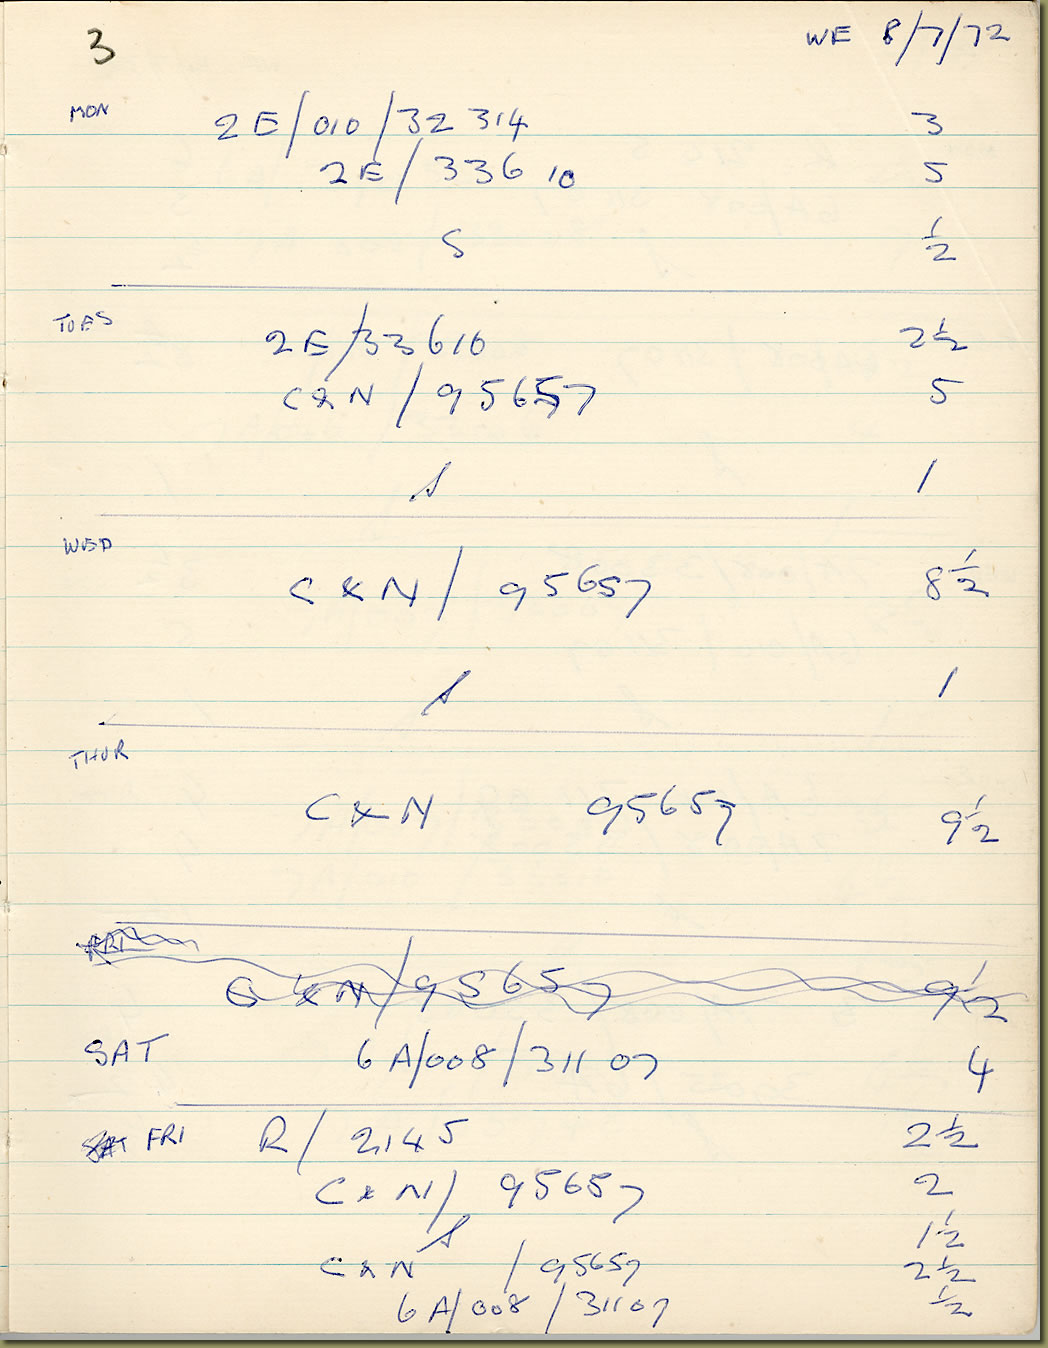 3 WE 8/7/72
MON 2E/010/32 314 3
2E/336 10 5
S ½
TUES 2E/33610 2½
C&N/95657 5
S 1
WED C&N/95657 8½
S 1
THUR
C&N 95657 9½
FRI
C&N/95657 9½
SAT 6A/008/31107 4
SAT FRI R/2145 2½
C&N/95657 2
S 1½
C&N/95657 2½
6A/008/31107 ½